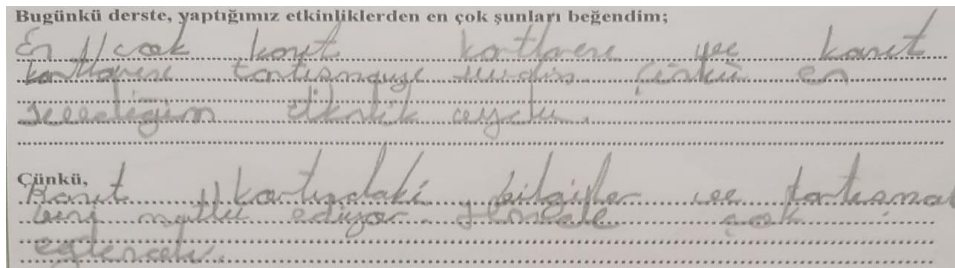 Bugünkü derste, yaptığımız etkinliklerden en çok şunları beğendim;
En çok kanıt kartlarını ve kanıt
kartlarını tartışmayı sevdim çünkü en
sevdiğim etkinlik oydu.
Çünkü,
Kanıt kartındaki bilgiler ve tartışma
beni mutlu ediyor. çok
eğlenceli.